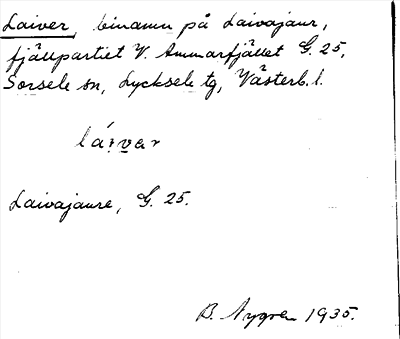 Laiver, binamn på Laivajaur,
fjällpartiet V. Ammarfjället G. 25,
Sorsele sn, Lycksele tg, Västerb. l.
láiver
Laivajaure, G. 25.
B. Nygren 1935.